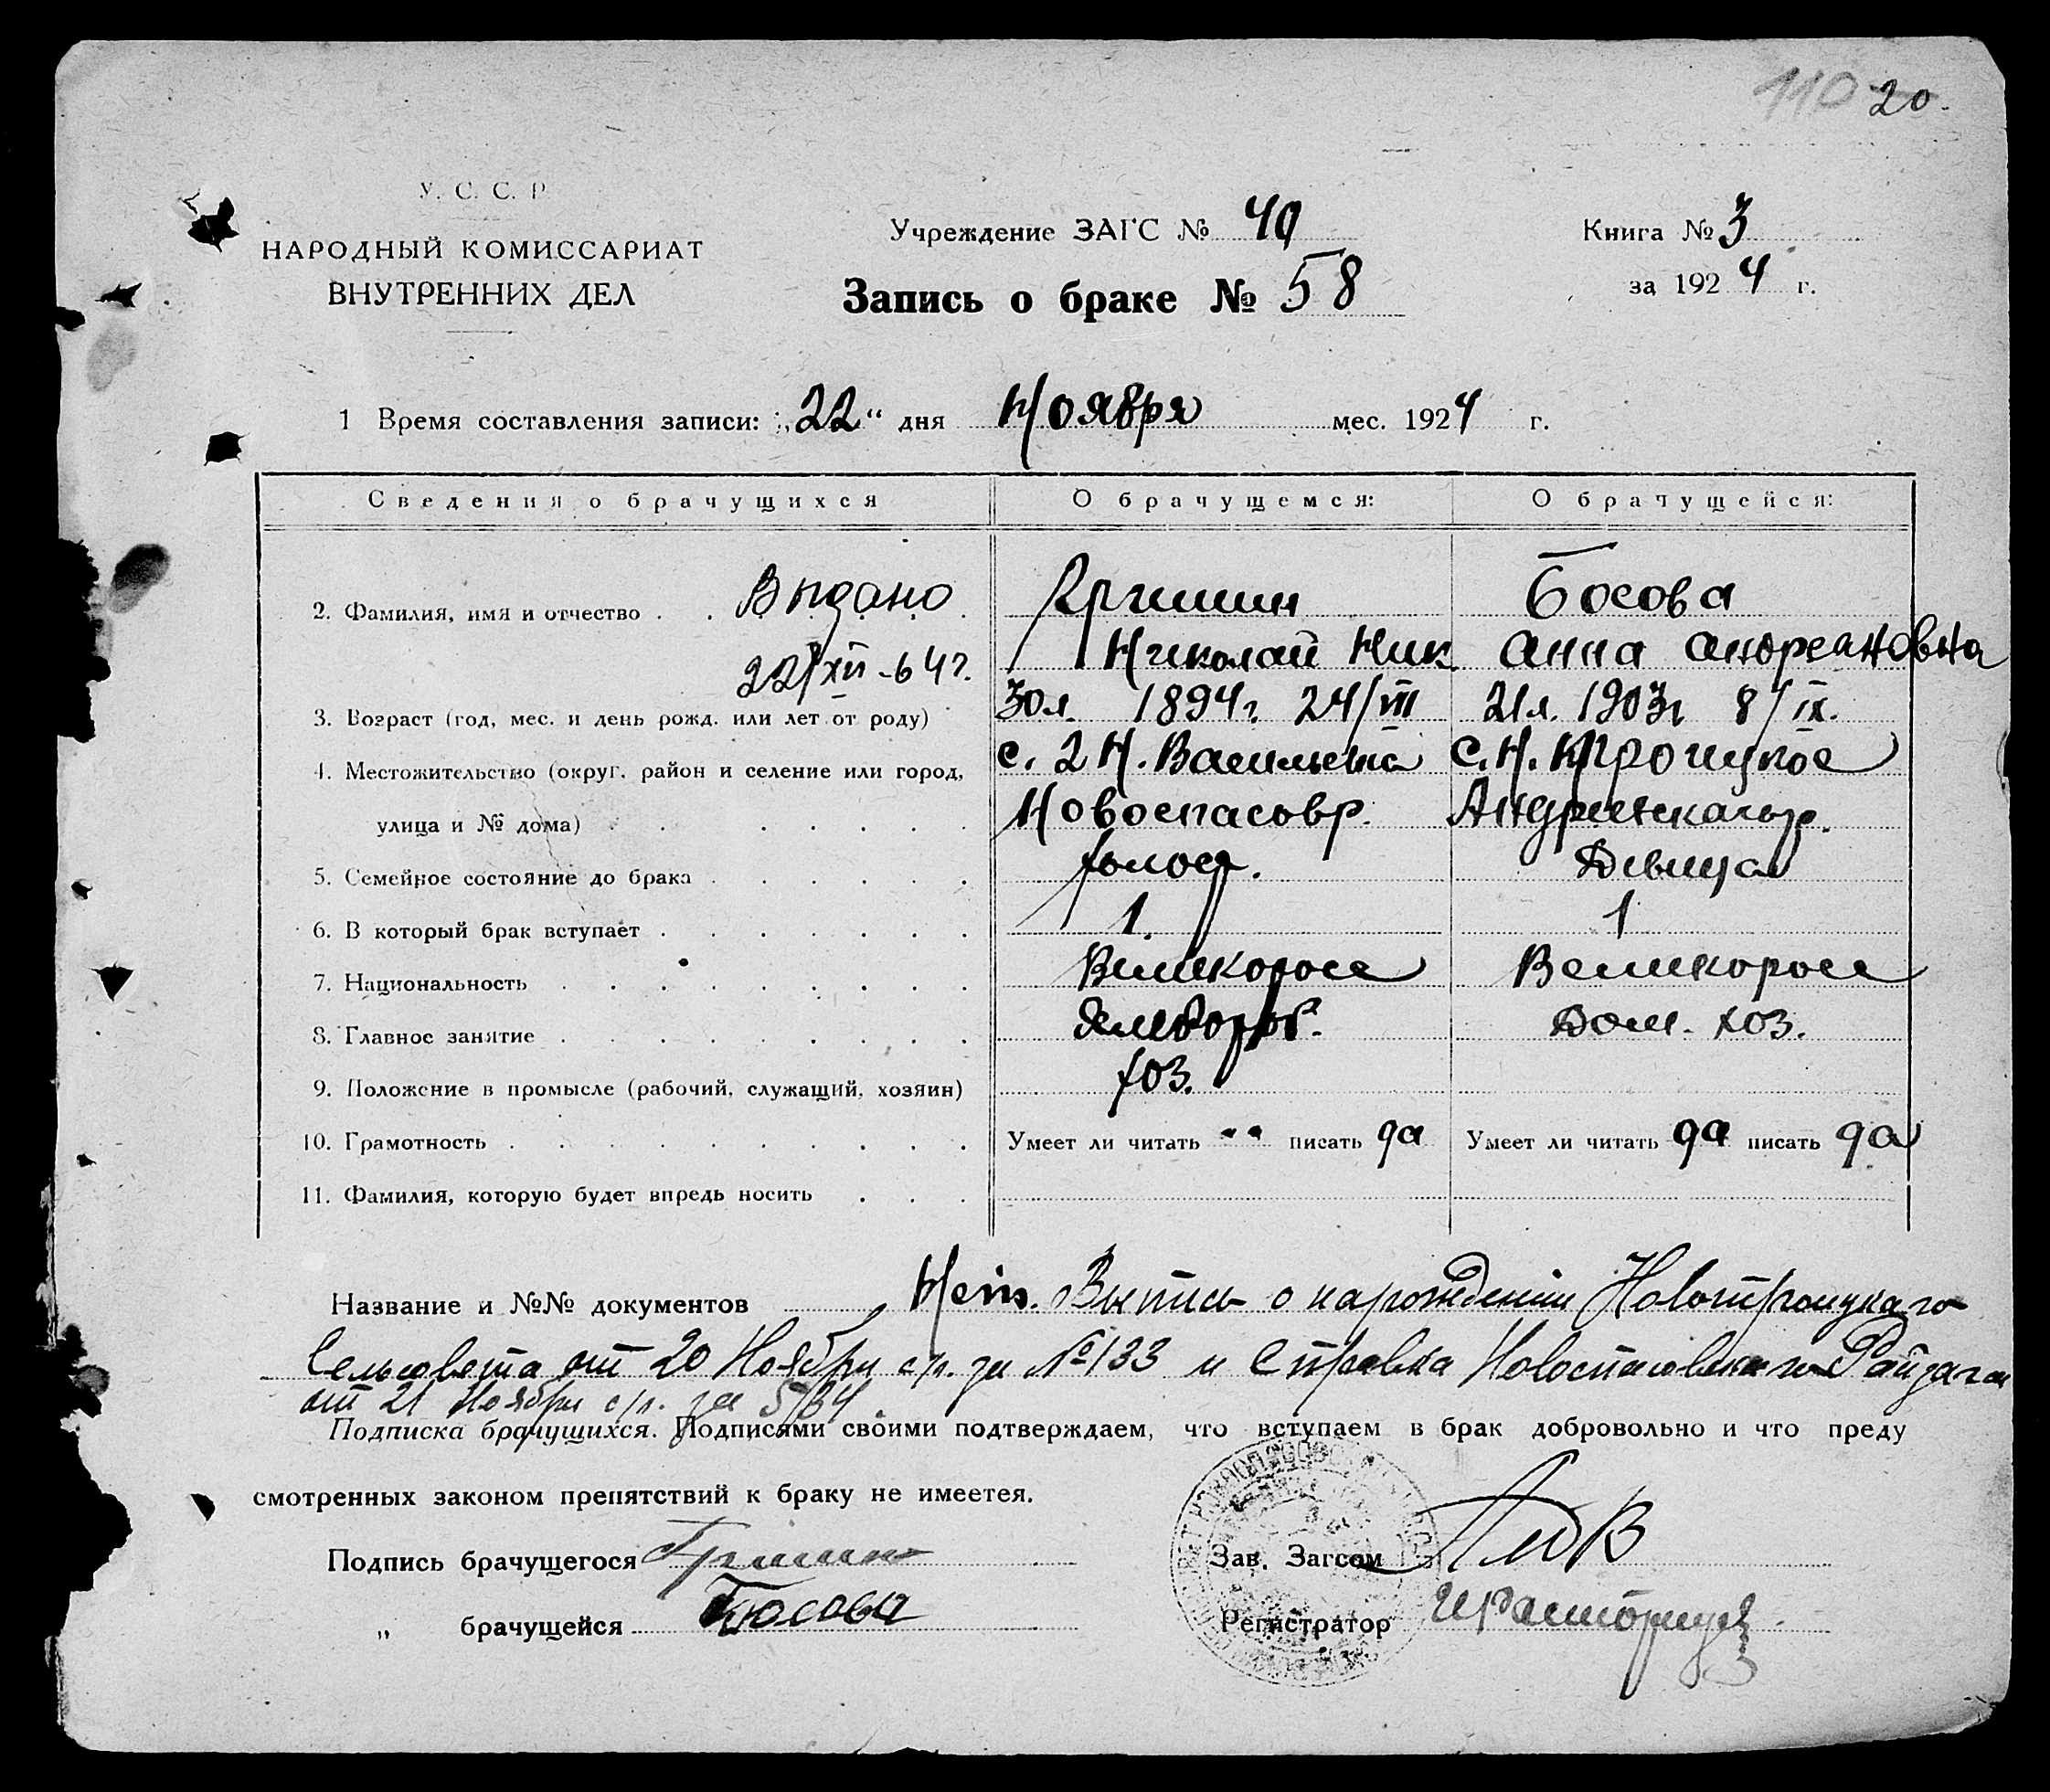 110 20.
У. С. С. Р.
НАРОДНЫЙ КОМИССАРИАТ
ВНУТРЕННИХ ДЕЛ
Учреждение ЗАГС № 40
Запись о браке № 58
Книга № 3
за 1924 г.
1 Время составления записи: „22“ дня Ноября мес. 1924 г.
Сведения о брачущихся О брачущемся: О брачущейся:
2. Фамилия, имя и отчество . . Выдано Гришин Босова
22/XII-64г. Николай Ник. Анна Андреановна
3. Возраст (год, мес. и день рожд. или лет от роду) 30л. 1894г. 24/VII 21л. 1903г 8/IX.
4. Местожительство (округ, район и селение или город, с. 2 Н. Васильевка С. Н. Троицкое
улица и № дома) Новоспасовр. Андреевскаго р.
5. Семейное состояние до брака холост. Девица
6. В который брак вступает 1. 1
7. Национальность Великоросс Великоросс
8. Главное занятие Хлебороб. Дом. хоз.
9. Положение в промысле (рабочий, служащий, хозяин) хоз.
10. Грамотность Умеет ли читать да писать да Умеет ли читать да писать да
11. Фамилия, которую будет впредь носить
Название и №№ документов Выпись о нарождении Новотроицкаго
Сельсовета от 20 Ноября с/г. за №133 и Справка Новоспасовскаго Райзагса
от 21 Ноября с/г. за 5734.
Подписка брачущихся. Подписями своими подтверждаем, что вступаем в брак добровольно и что преду
смотренных законом препятствий к браку не имеется.
Подпись брачущегося Гришин Зав. Загсом
„ брачущейся Босова Регистратор